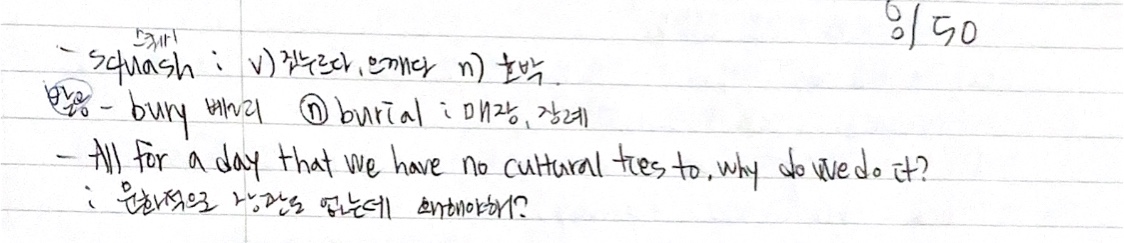 8/50
스쿼시
- squash : v) 짓누르다, 으깨다 n) 호박.
발음 - bury 베어리 ⓝ burial : 매장, 장례
- All for a day that we have no cultural ties to, why do we do it?
: 문화적으로 상관도 없는데 왜해야해?